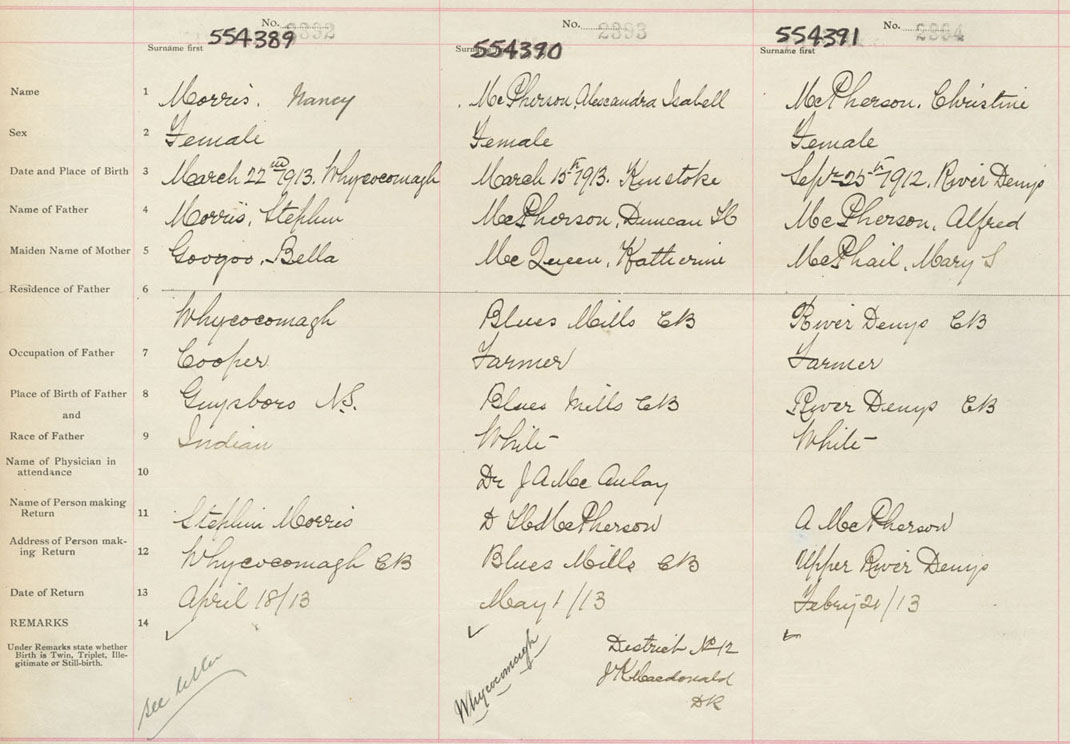 No. 2892 No. 2893 No. 2894
554389 554390 554391
Surname first Surname first Surname first
Name 1 Morris, Nancy McPherson, Alexandra Isabell McPherson, Christine
Sex 2 Female Female Female
Date and Place of Birth 3 March 22nd 1913. Whycocomagh March 15th 1913. Sept 25th 1912, River Denys
Name of Father 4 Morris, Stephen McPherson, Duncan H McPherson, Alfred
Maiden Name of Mother 5 Googoo, Bella McQueen, Katherine McPhail, Mary S
Residence of Father 6
Whycocomagh Blues Mills CB River Denys CB
Occupation of Father 7 Cooper Farmer Farmer
Place of Birth of Father 8 Guysboro N.S. Blues Mills CB River Denys CB
and
Race of Father 9 Indian White White
Name of Physician in
attendance 10 Dr J A McAulay
Name of Person making
Return 11 Stephen Morris D McPherson A McPherson
Address of Person mak-
ing Return 12 Whycocomagh CB Blues Mills CB Upper River Denys
Date of Return 13 April 18/13 May 1/13 Febry 21/13
REMARKS 14
Under Remarks state whether
Birth is Twin, Triplet, Ille-
gitimate or Still-birth.
see letter
Whycocomagh
District No 12
J K Macdonald
DR